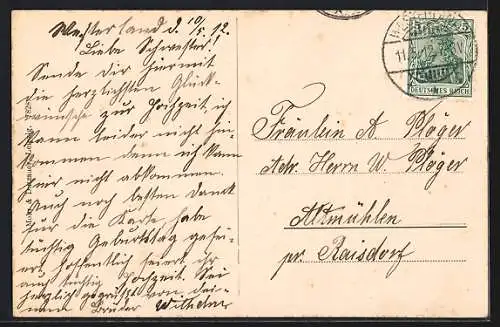 Westerland d. 10/5. 12.
Liebe Schwester!
Sende dir hiermit
die herzlichsten Glück-
wünsche zur Hochzeit, ich
kann leider nicht hin-
kommen denn ich kann
hir nicht abkommen.
Auch noch besten Dank
für die Karte, habe
tüchtig Geburtstag gefei-
ert, hoffentlich feiert ihr
auch tüchtig Hochzeit. Sei
herzlich gegrüßt von dei-
nem Bruder Wilhelm
5
DEUTSCHES REICH
Fräulein A Plöger
Adr. Herrn W. Plöger
Altmühlen
pr. Raisdorf